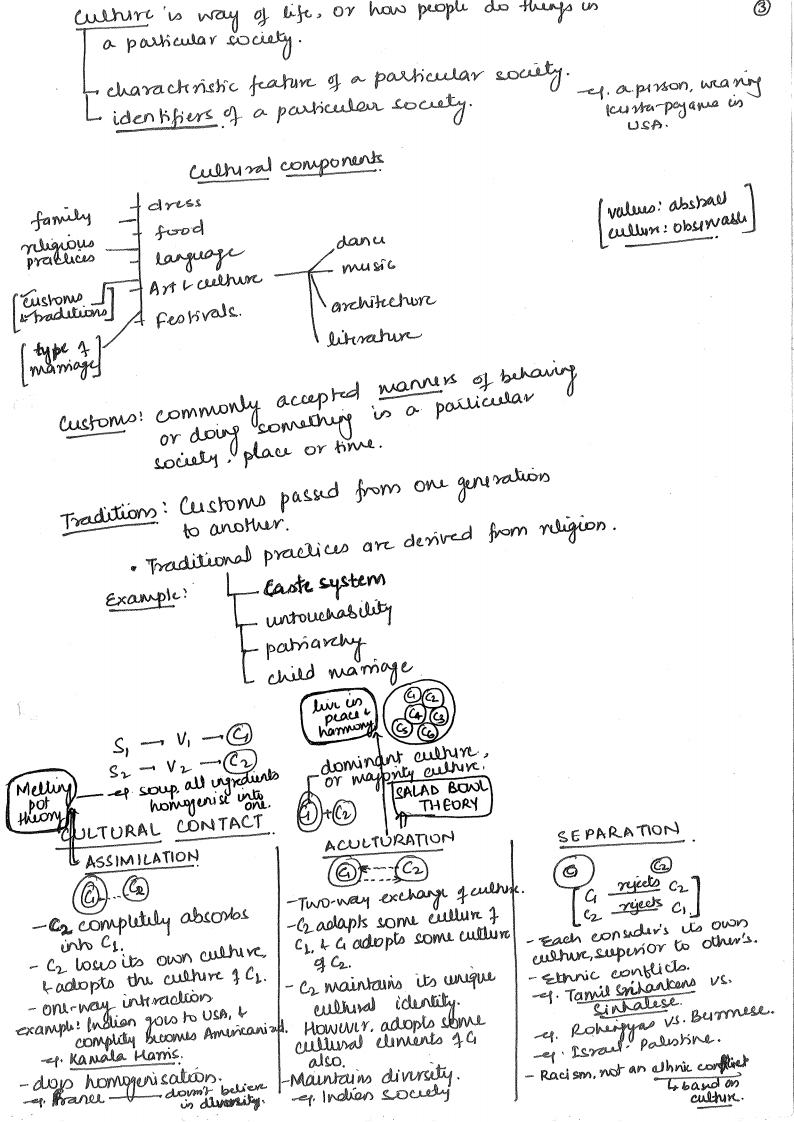 ③
Culture is way of life, or how people do things in
a particular society.
→ characteristic feature of a particular society.
→ identifiers of a particular society.
→ eg. a person, wearing
kurta-pajama in
USA.
Cultural components
family
religious
practices
[customs
& traditions]
[type of
marriage]
dress
food
language
Art & culture
Festivals.
dance
music
architecture
literature
[values: abstract
culture: observable]
Customs: commonly accepted manners of behaving
or doing something in a particular
society, place or time.
Traditions: Customs passed from one generation
to another.
• Traditional practices are derived from religion.
Example:
Caste system
untouchability
patriarchy
child marriage
S1 → V1 → C1
S2 → V2 → C2
Melting
pot
theory
→ eg. soup, all ingredients
homogenise into
one.
live in
peace &
harmony
C1 C2
C4 C3
C5 C6
dominant culture,
or majority culture.
C1 + C2
SALAD BOWL
THEORY
CULTURAL CONTACT
ASSIMILATION
C1 C2
- C2 completely absorbs
into C1.
- C2 loses its own culture,
& adopts the culture of C1.
- one-way interaction
example: Indian goes to USA, &
completly becomes Americanized.
→ eg. Kamala Harris.
- does homogenisation.
→ eg. France → doesn't believe
in diversity.
ACULTURATION
C1 C2
- Two-way exchange of culture.
- C2 adapts some culture of
C1, & C1 adopts some culture
of C2.
- C2 maintains its unique
cultural identity.
However, adopts some
cultural elments of C1
also.
- Maintains diversity.
→ eg. Indian society
SEPARATION
C1 C2
[C1 rejects C2
C2 rejects C1]
- Each consider's its own
culture, superior to other's.
- Ethnic conflicts.
→ eg. Tamil Srilankens vs.
Sinhalese.
→ eg. Rohengyas vs. Burmese.
→ eg. Israel- Palestine.
- Racism, not an ethnic conflict
↳ based on
culture.